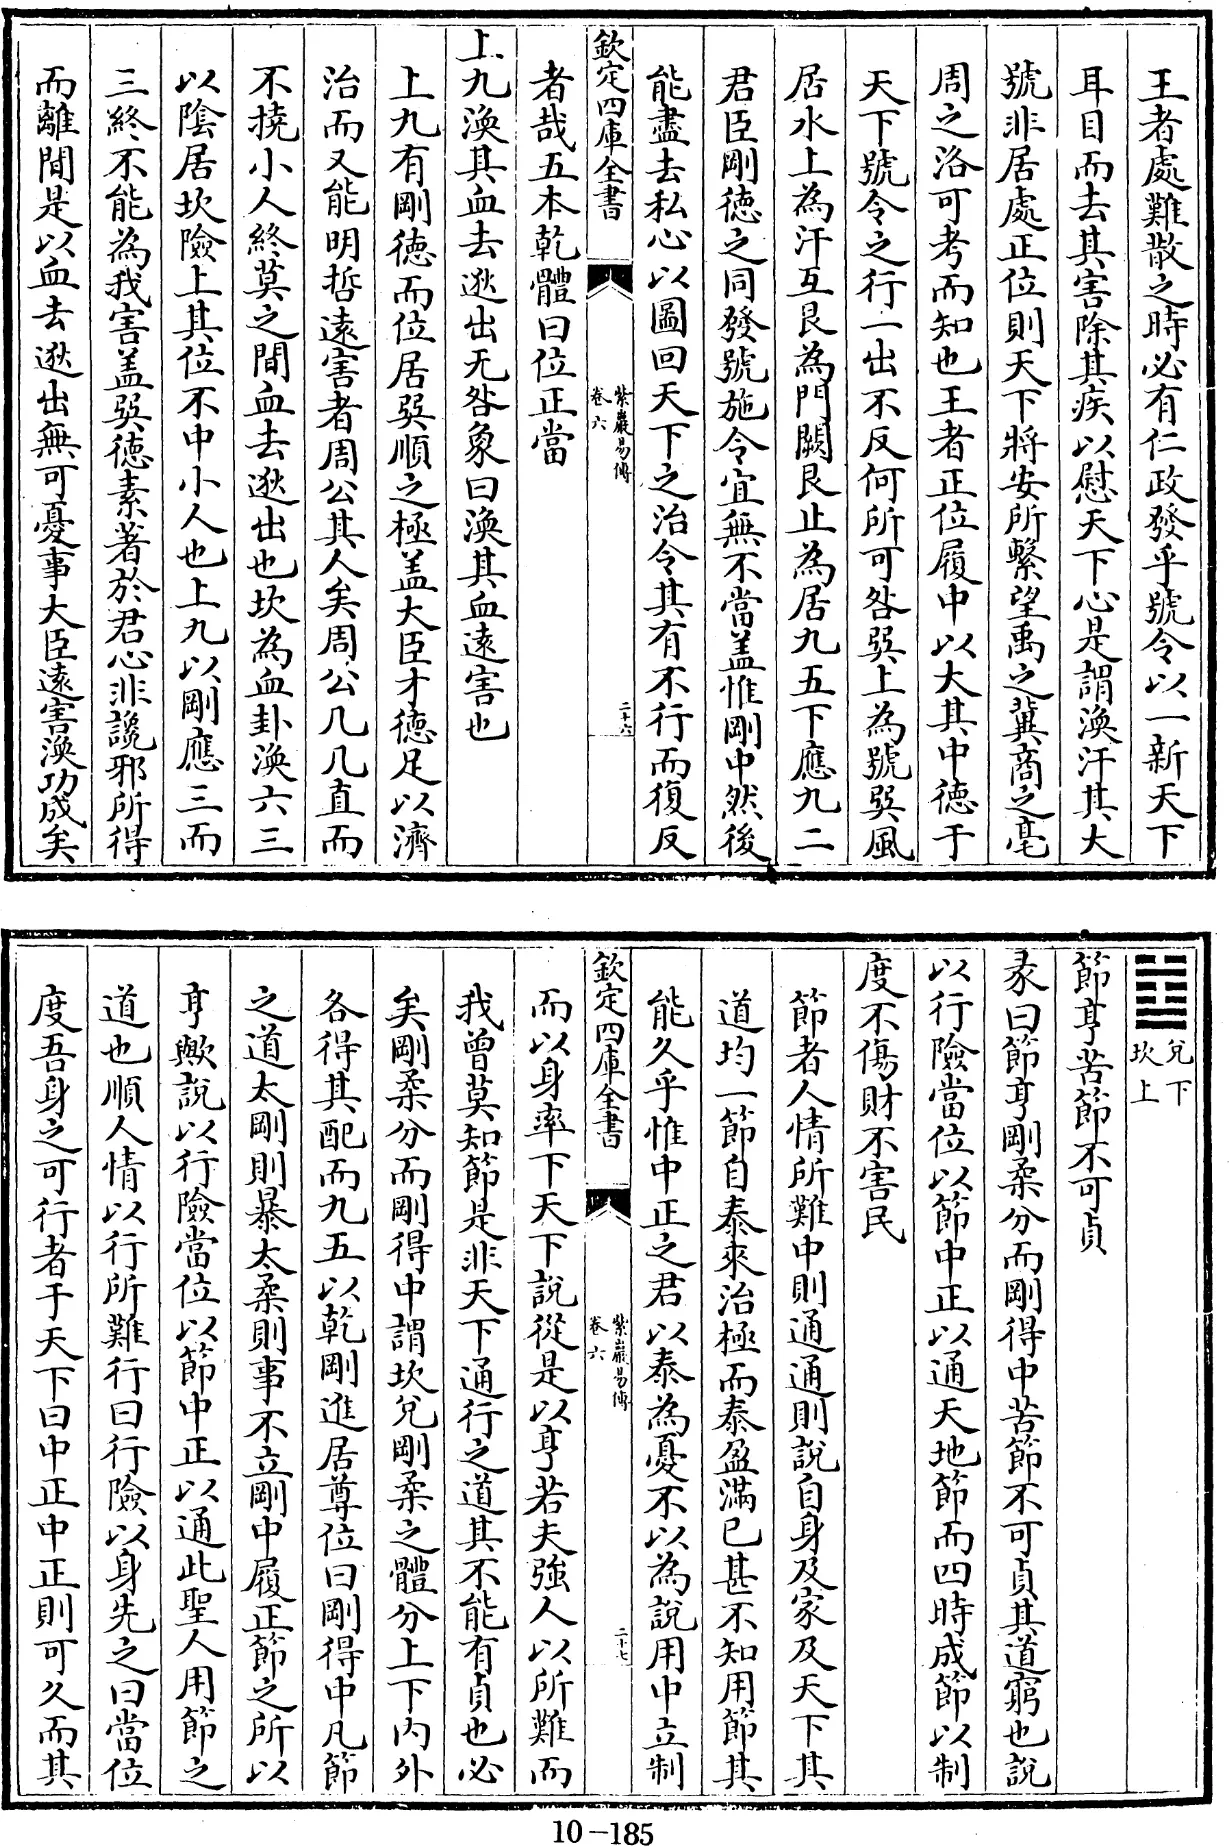 王者處難散之時必有仁政發乎號令以一新天下
耳目而去其害除其疾以慰天下心是謂渙汗其大
號非居處正位則天下將安所繫望禹之冀商之亳
周之洛可考而知也王者正位履中以大其中德于
天下號令之行一出不反何所可咎巽上為號巽風
居水上為汗互艮為門闕艮止為居九五下應九二
君臣剛德之同發號施令宜無不當盖惟剛中然後
能盡去私心以圖回天下之治令其有不行而復反
欽定四庫全書
紫巖易傳
卷六
二十六
者哉五本乾體曰位正當
上九渙其血去逖出无咎象曰渙其血遠害也
上九有剛德而位居巽順之極盖大臣才德足以濟
治而又能明哲遠害者周公其人矣周公几几直而
不撓小人終莫之間血去逖出也坎為血卦渙六三
以陰居坎險上其位不中小人也上九以剛應三而
三終不能為我害盖巽德素著於君心非讒邪所得
而離間是以血去逖出無可憂事大臣遠害渙功成矣
兌下
坎上
節亨苦節不可貞
彖曰節亨剛柔分而剛得中苦節不可貞其道窮也說
以行險當位以節中正以通天地節而四時成節以制
度不傷財不害民
節者人情所難中則通通則說自身及家及天下其
道均一節自泰來治極而泰盈滿已甚不知用節其
能久乎惟中正之君以泰為憂不以為說用中立制
欽定四庫全書
紫巖易傳
卷六
二十七
而以身率下天下說從是以亨若夫強人以所難而
我曾莫知節是非天下通行之道其不能有貞也必
矣剛柔分而剛得中謂坎兌剛柔之體分上下內外
各得其配而九五以乾剛進居尊位曰剛得中凡節
之道太剛則暴太柔則事不立剛中履正節之所以
亨歟說以行險當位以節中正以通此聖人用節之
道也順人情以行所難行曰行險以身先之曰當位
度吾身之可行者于天下曰中正中正則可久而其
10-185